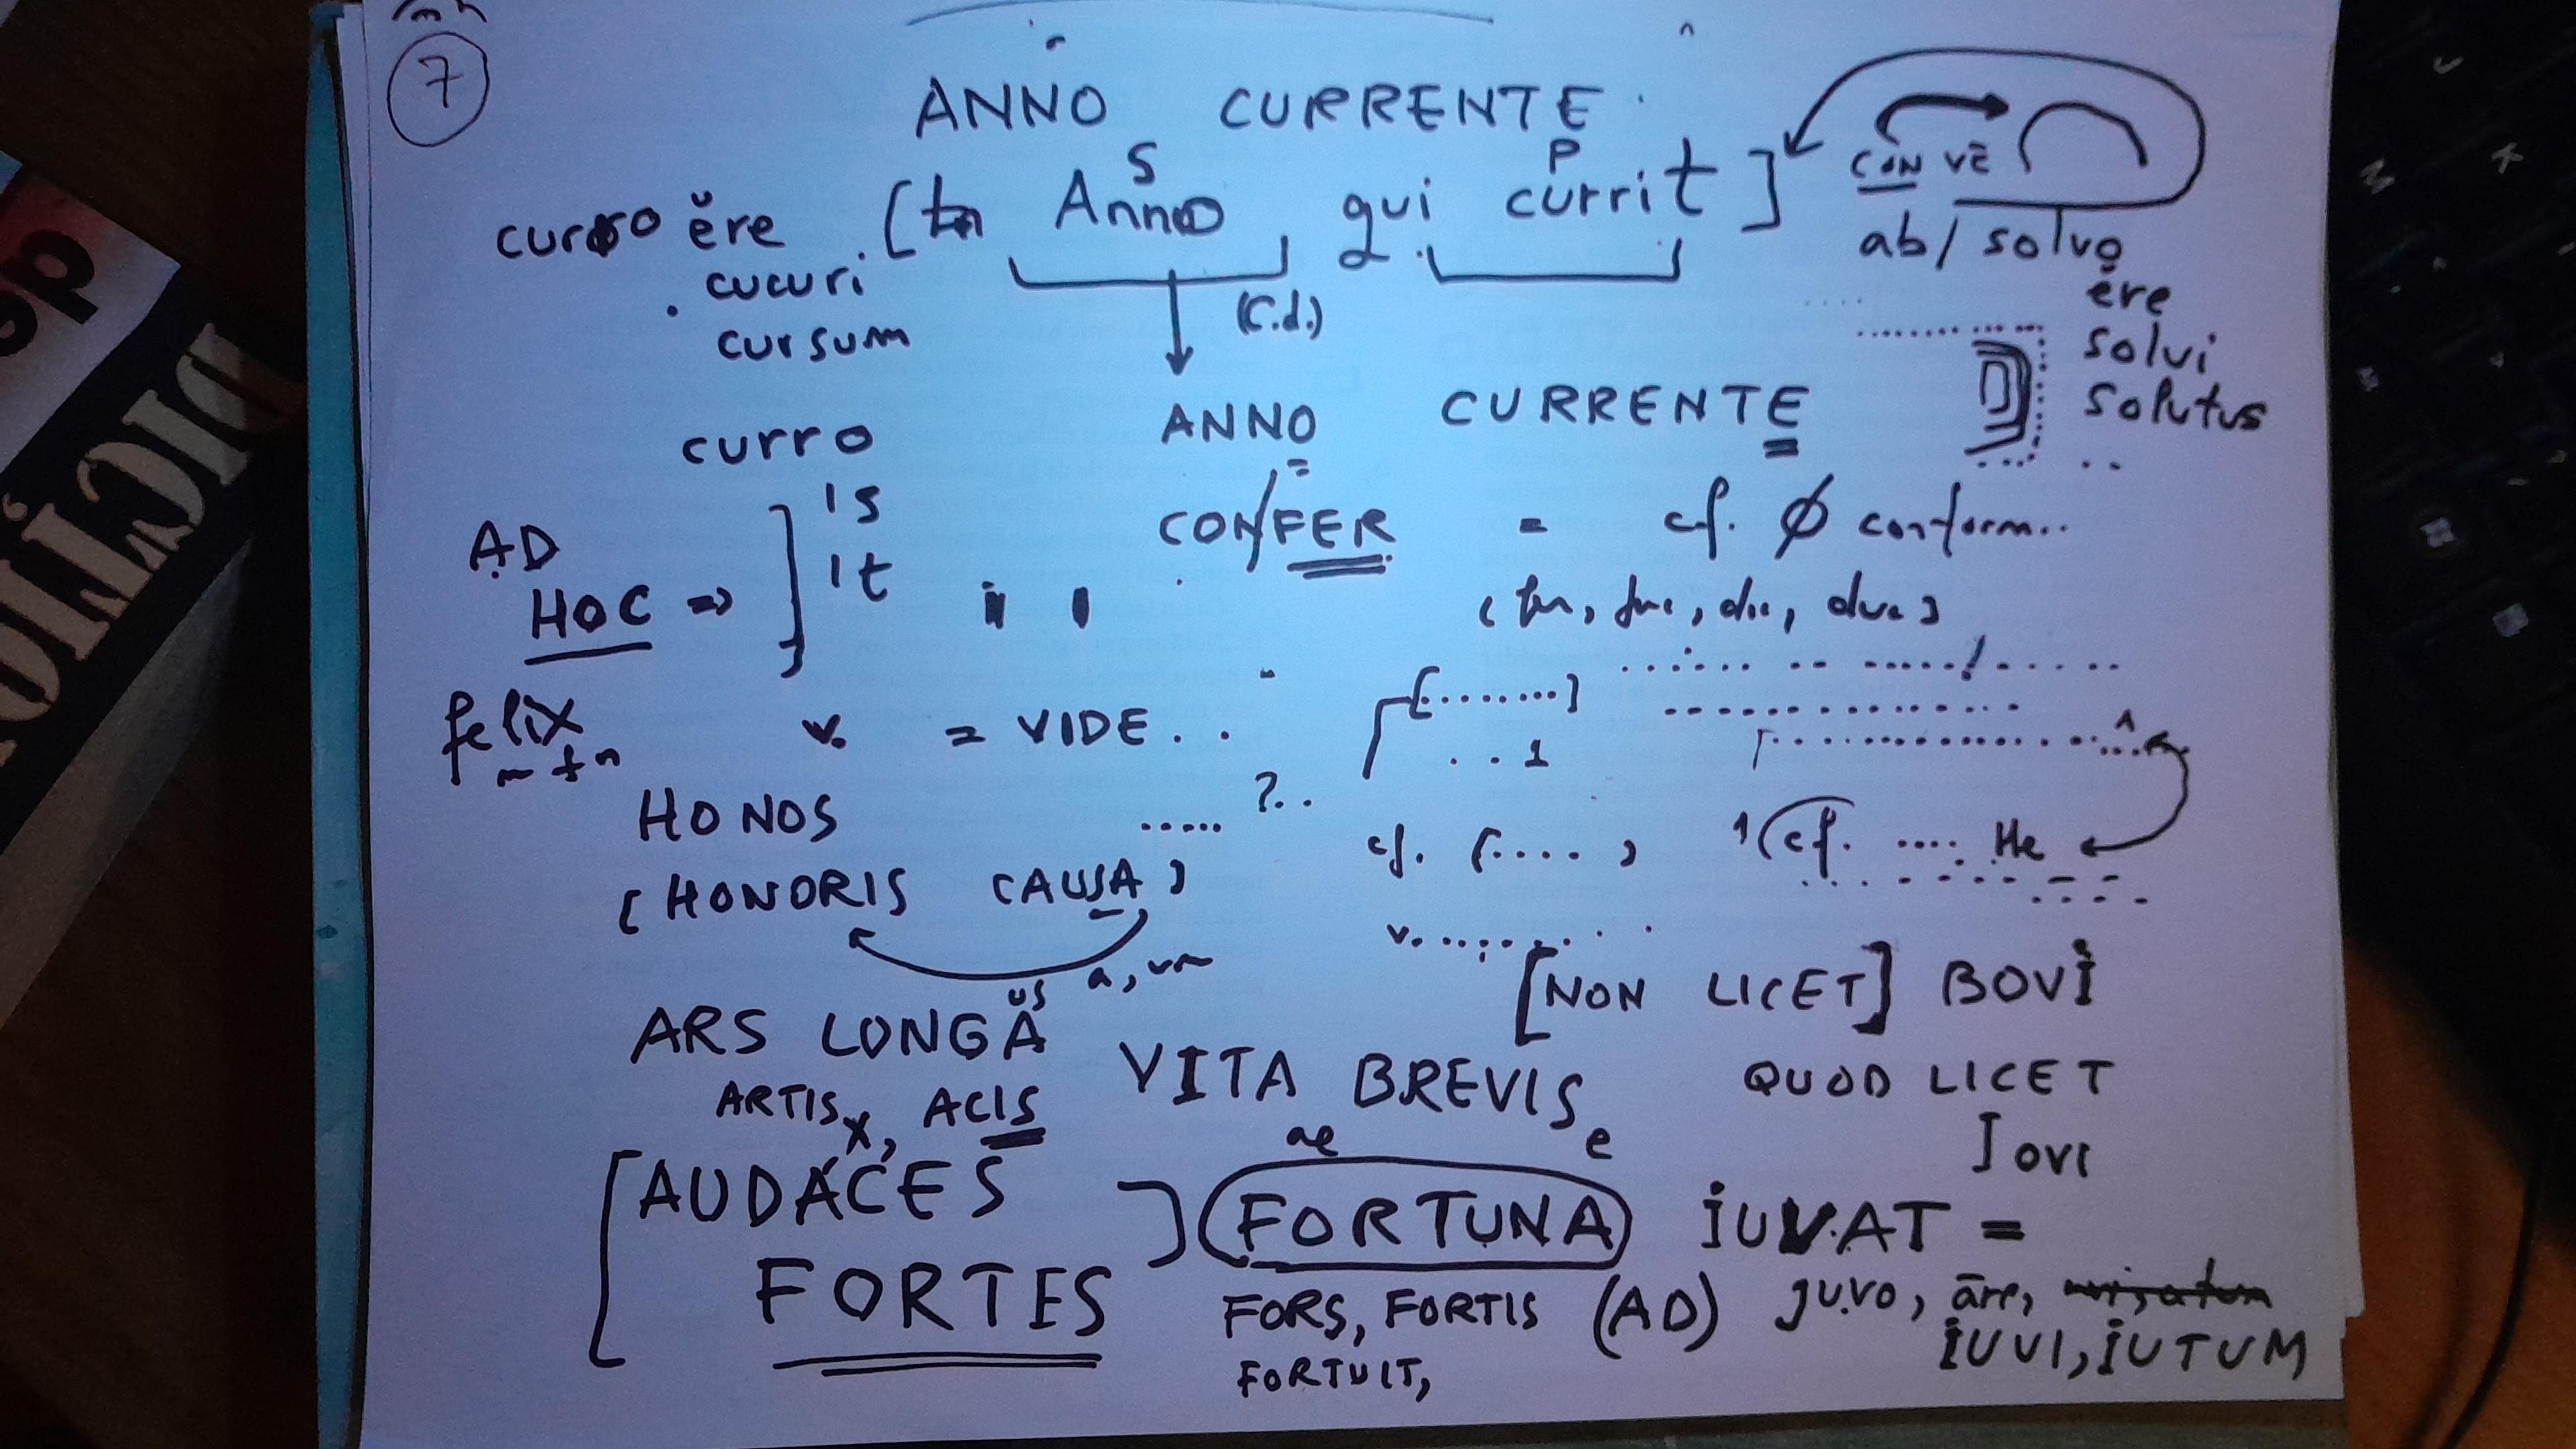 7
ANNO CURRENTE
S P
curro ĕre [in Anno, qui currit]
CON VĒ
ab/solvo
ĕre
solvi
solutus
cucuri
cursum
(c.d.)
ANNO CURRENTE
curro
is
it
CON/FER = cf. Ø conform..
AD
HOC =>
felix
m f n
v. = VIDE . .
[........]
. . 1
HONOS ..... ?..
cf. [.... ,
1 (cf. ..... He
(HONORIS CAUSA)
v. ........
a, um
[NON LICET] BOVI
us
ARS LONGA
VITA BREVIS
QUOD LICET
JOVI
ARTIS, ACIS
ae e
x,
[AUDACES
FORTES]
FORTUNA IUVAT =
FORS, FORTIS (AD) juvo, āre,
IUVI, IUTUM
FORTUIT,
DICȚIO
de